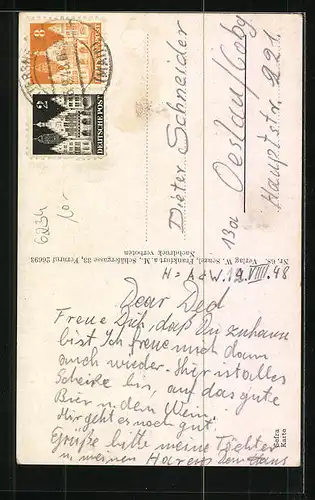 8
2
DEUTSCHE POST
(MAIN)
6234
10-
Dieter Schneider
13a Oeslau/Cobg
Hauptstr. 221
Nr. 65. Verlag W. Scanzl, Frankfurt a. M., Schäfergasse 33, Fernruf 26693
Nachdruck verboten
H=AdW. 19.VIII.48
Dear Ded
Freue Dich, daß Du zuhause
bist. Ich freue mich dann
auch wieder. Hier ist alles
Scheiße bis auf das gute
Bier u. den Wein.
Mir geht es noch gut.
Grüße bitte meine Töchter
u. meinen Harem Dein Hans
Sofra
Karte